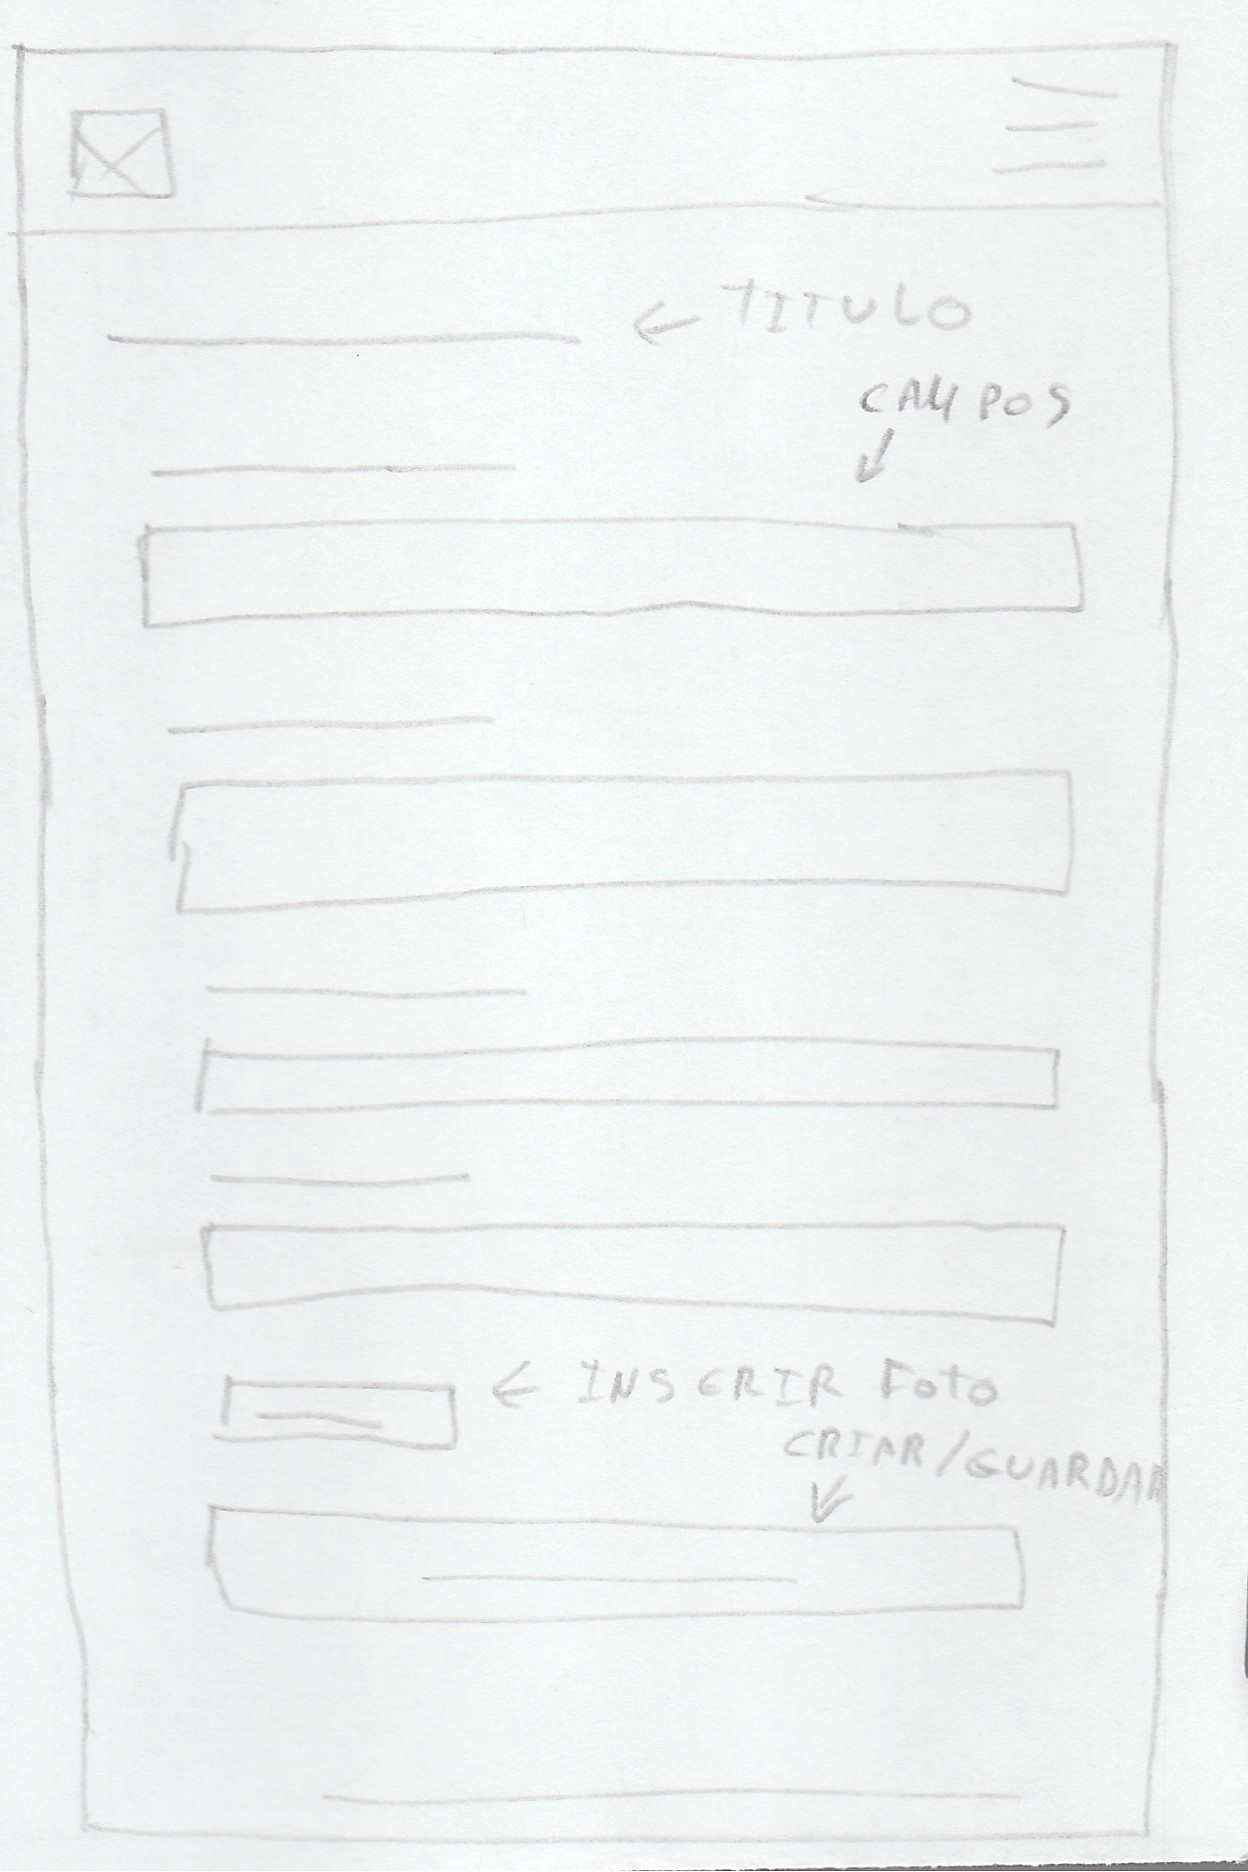 TITULO
CAMPOS
INSERIR FOTO
CRIAR/GUARDAR